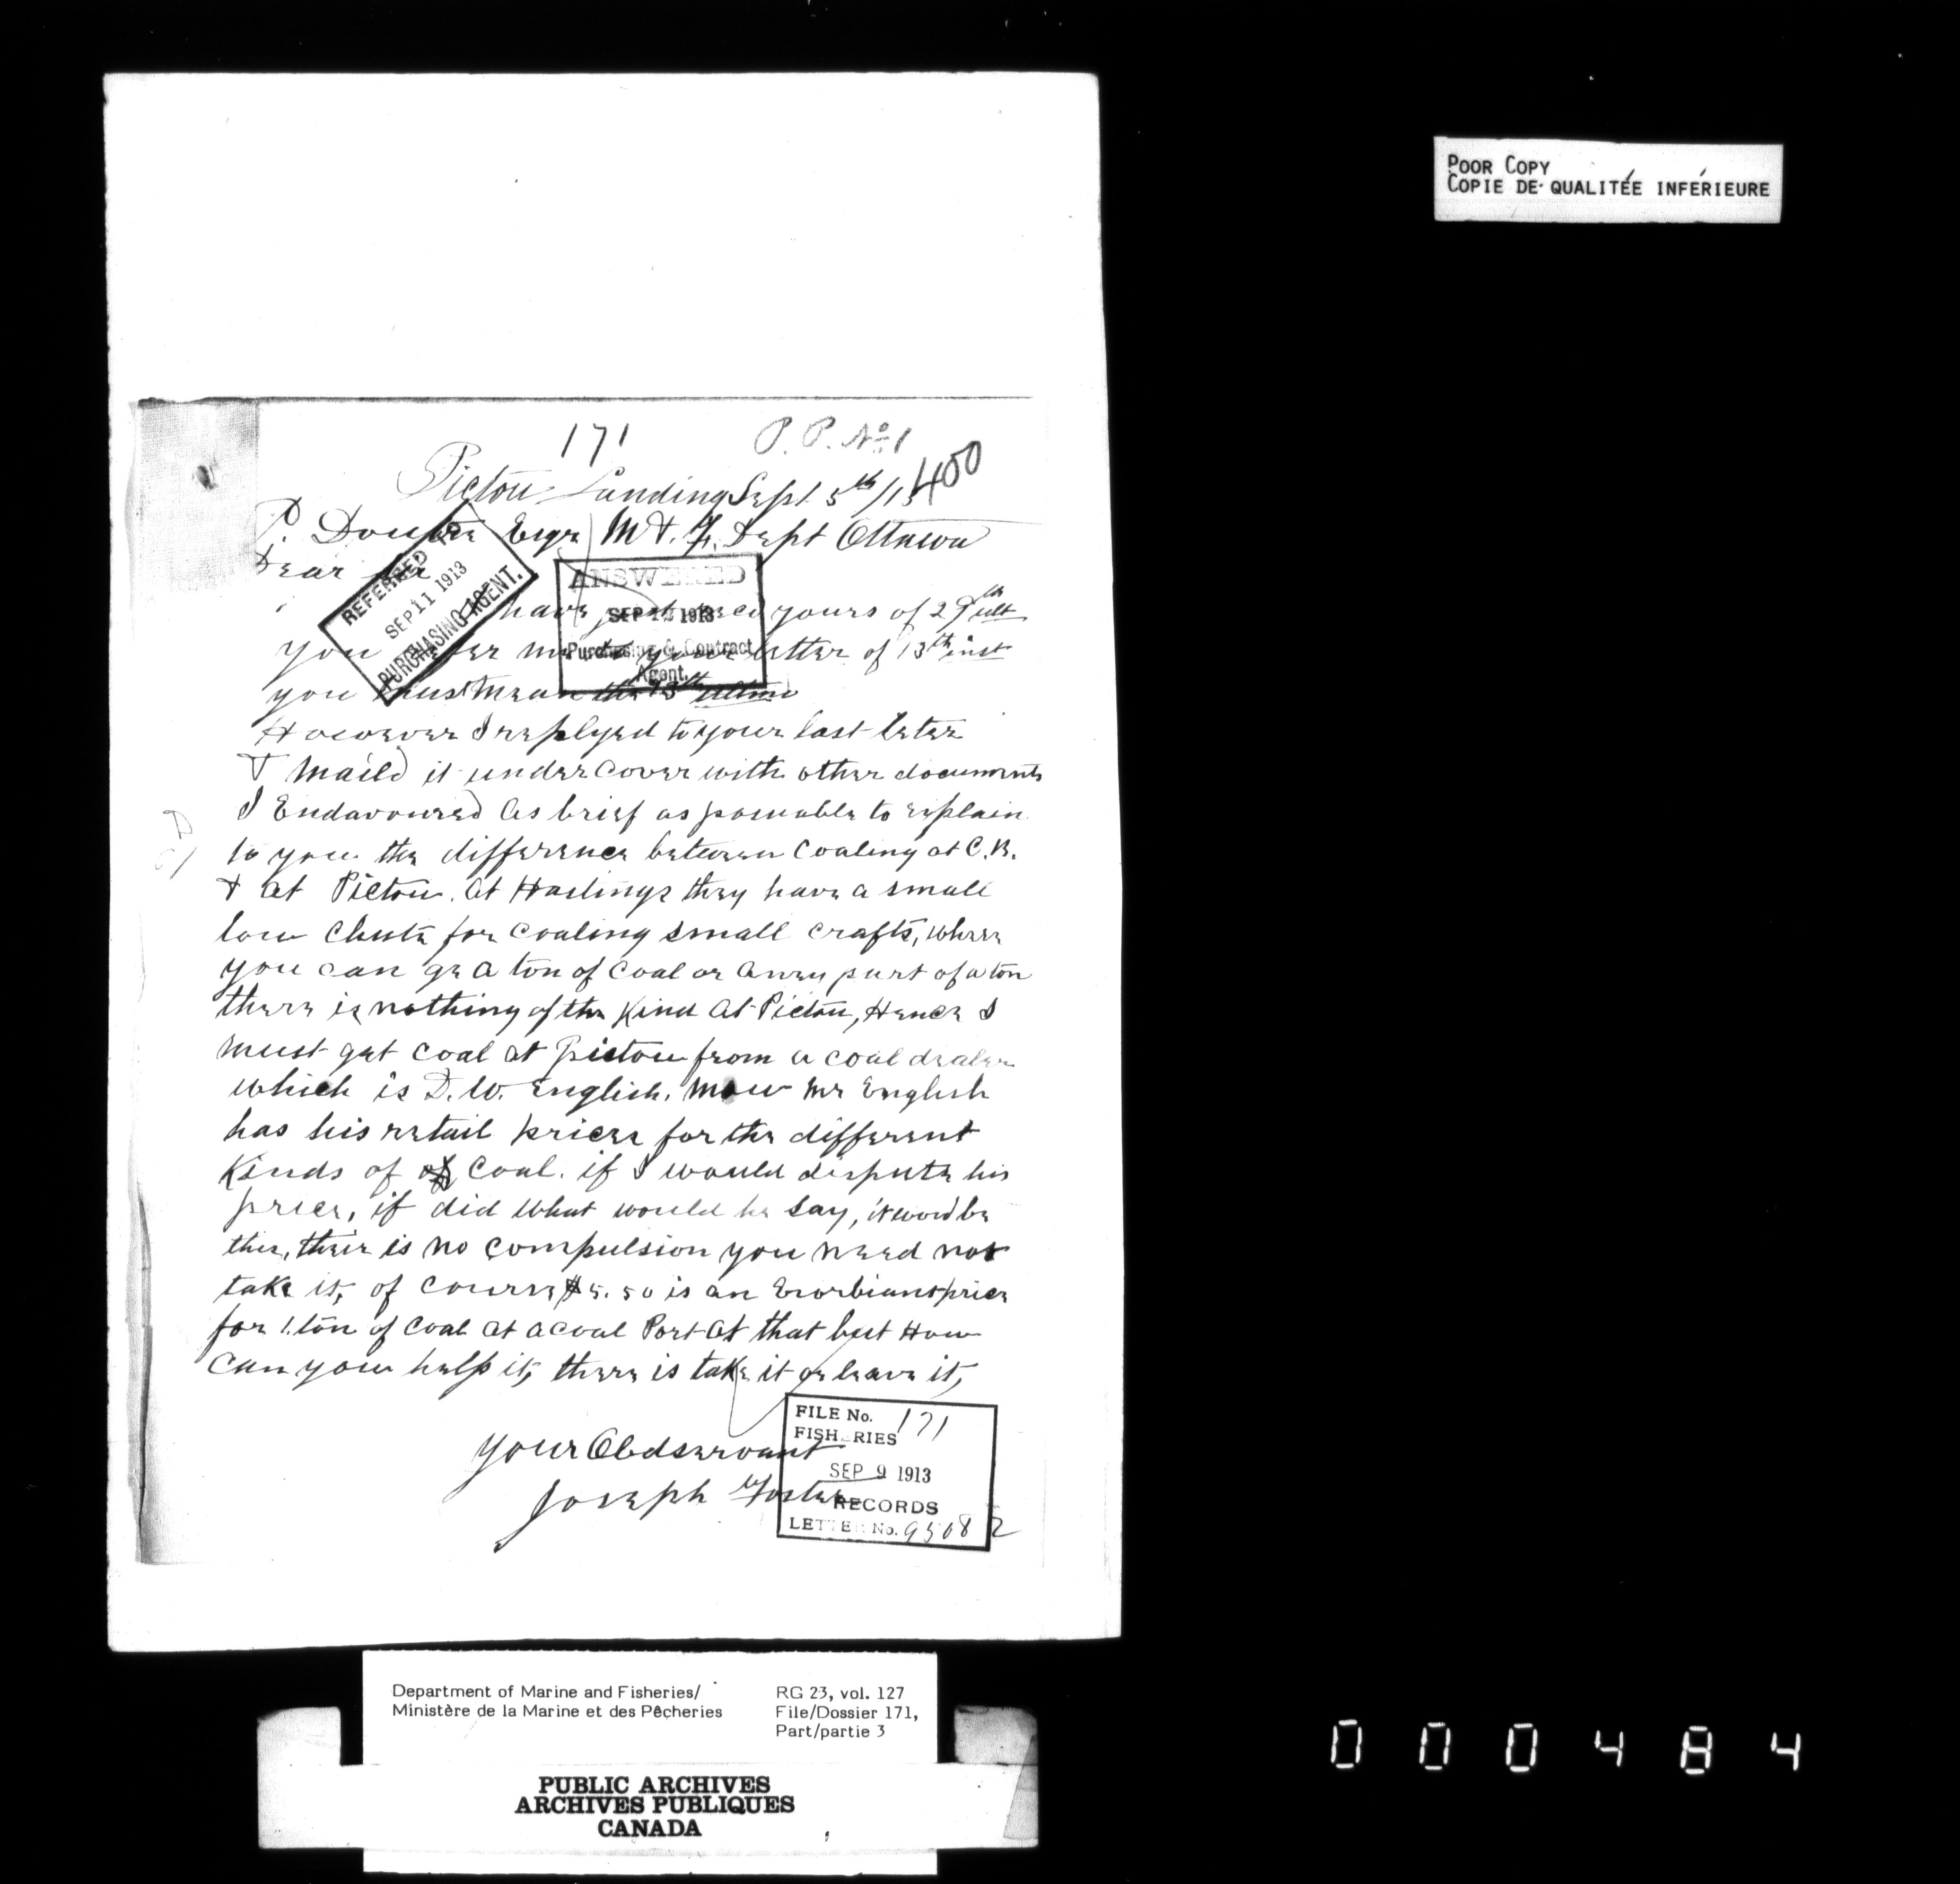 POOR COPY
COPIE DE QUALITÉE INFÉRIEURE
171
P. P. No 1
400
Pictou Landing Sept 5th/13
Esqr M & F. Dept Ottawa
Dear Sir
REFERRED TO
SEP 11 1913
PURCHASING AGENT.
ANSWERED
SEP 1913
Purchasing & Contract
Agent.
have just recd yours of 29th ult
you refer me to your letter of 13th inst
you must mean the 13th ultimo
However I replyed to your last letter
& maild it under cover with other documents
I Endavoured as brief as possable to explain
to you the difference between Coaling at C.B.
& at Pictou. at Hastings they have a small
low Chute for Coaling small crafts, where
you can ge a ton of Coal or aney part of a ton
there is nothing of the Kind at Pictou, Hence I
must get coal at Pictou from a coal dealer
which is D. W. English. Now Mr English
has his retail prices for the different
Kinds of of Coal. if I would dispute his
price, if did what would he say, it woud be
this, their is no compulsion you need not
take it, of course $5.50 is an Exorbiant price
for 1. ton of Coal at a coal Port at that but How
can you help it, there is take it or leave it,
your Obd servant
Joseph Foster
FILE No. 171
FISHERIES
SEP 9 1913
RECORDS
LETTER No. 95082
Department of Marine and Fisheries/
Ministère de la Marine et des Pêcheries
RG 23, vol. 127
File/Dossier 171,
Part/partie 3
PUBLIC ARCHIVES
ARCHIVES PUBLIQUES
CANADA
000484